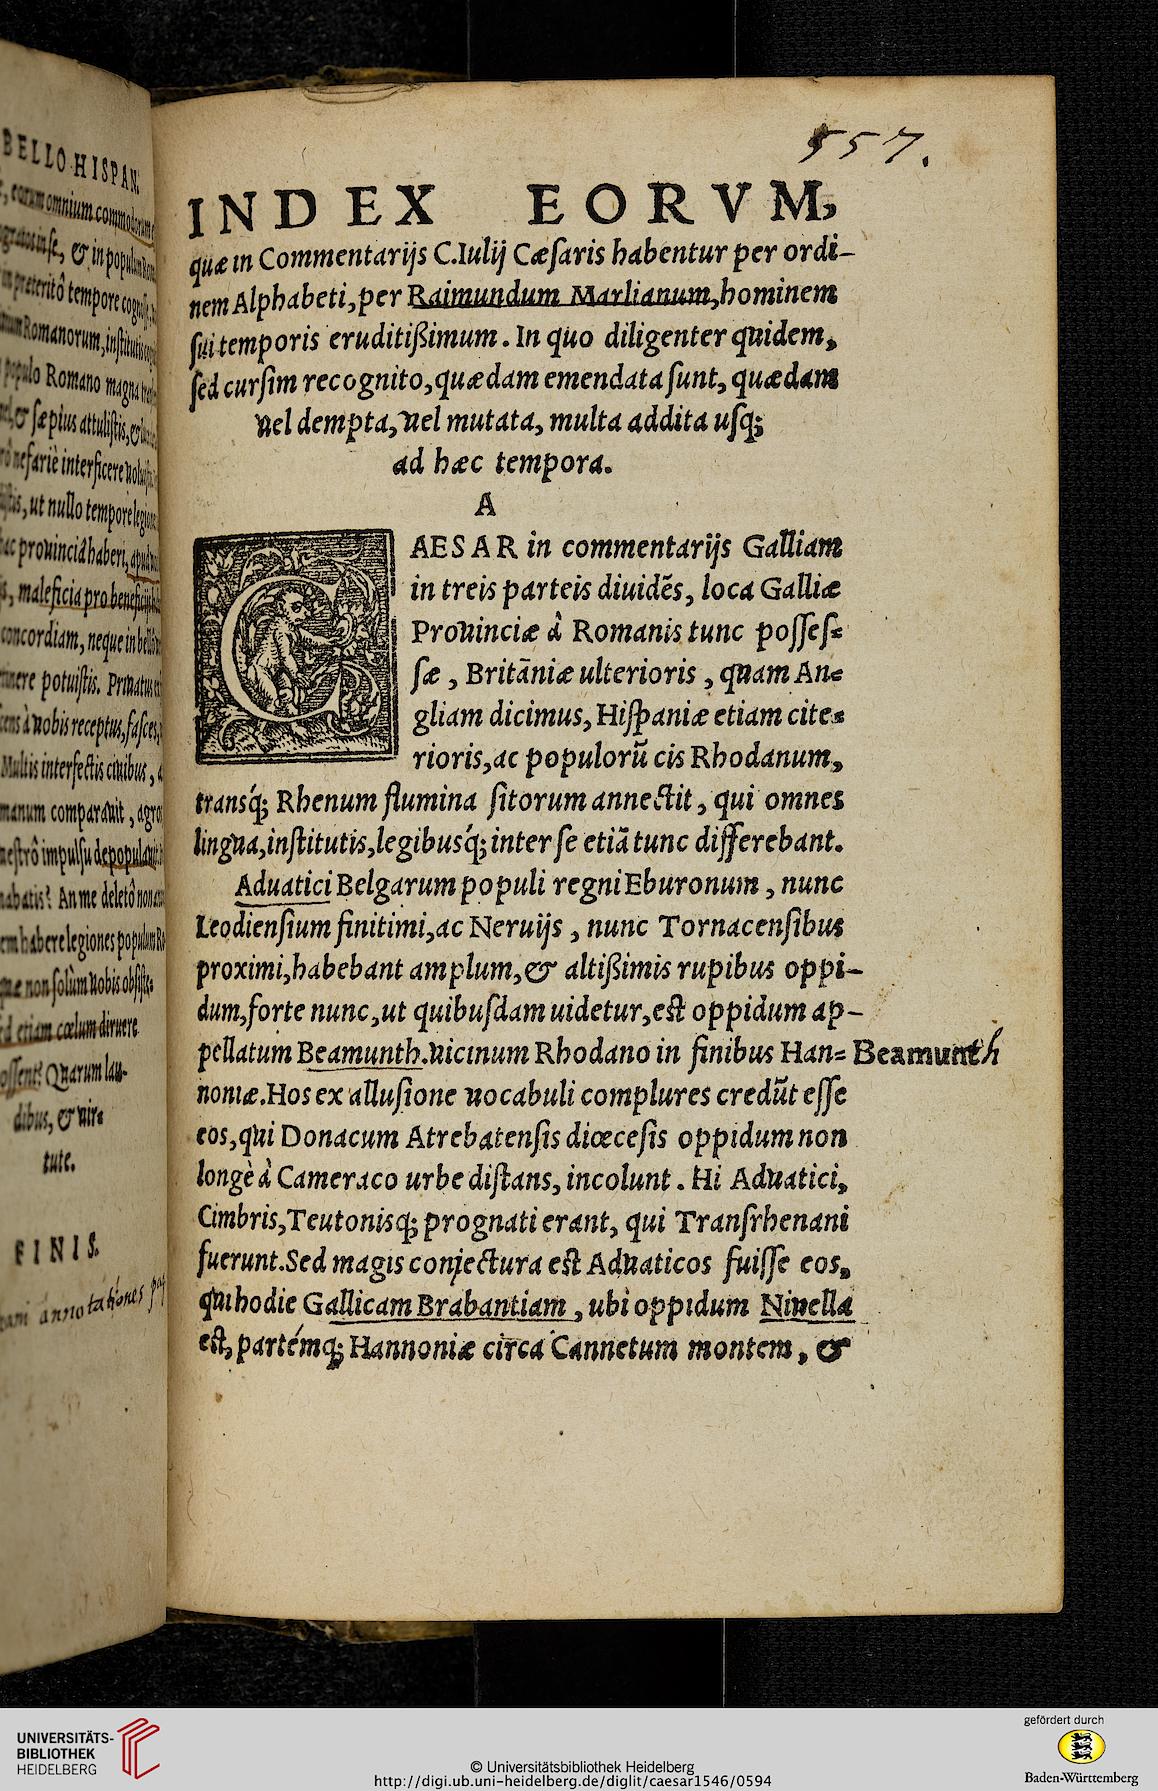 BELLO HISPAN.
populo Romano magna
sæpius attulistis, &
nefariè interficere uolu
ut nullo tempore legion
prouinciã haberi, apud
maleficia pro beneficijs
concordiam, neque in bello
potuistis. Priuatus
à uobis receptus, fasces,
Multis interfectis ciuibus,
comparauit, agro
impulsu depopulauit
An me deletô non
habere legiones populum Ro
non solùm uobis obsiste
etiam cœlum diruere
Quarum lau-
dibus, & uir=
tute.
FINIS.
annotationes
557.
INDEX EORVM,
quæ in Commentarijs C.Iulij Cæsaris habentur per ordi-
nem Alphabeti,per Raimundum Marlianum,hominem
sui temporis eruditißimum. In quo diligenter quidem,
sed cursim recognito,quædam emendata sunt, quædam
uel dempta, uel mutata, multa addita usq;
ad hæc tempora.
A
CAESAR in commentarijs Galliam
in treis parteis diuidẽs, loca Galliæ
Prouinciæ à Romanis tunc posses=
sæ, Britãniæ ulterioris, quam An=
gliam dicimus, Hispaniæ etiam cite=
rioris,ac populorũ cis Rhodanum,
transq́; Rhenum flumina sitorum annectit, qui omnes
lingua,institutis,legibusq́; inter se etiã tunc differebant.
Aduatici Belgarum populi regni Eburonum, nunc
Leodiensium finitimi,ac Neruijs, nunc Tornacensibus
proximi,habebant amplum,& altißimis rupibus oppi-
dum,forte nunc,ut quibusdam uidetur,est oppidum ap-
pellatum Beamunth.uicinum Rhodano in finibus Han= Beamunth
noniæ.Hos ex allusione uocabuli complures credũt esse
eos,qui Donacum Atrebatensis diœcesis oppidum non
longè à Cameraco urbe distans, incolunt. Hi Aduatici,
Cimbris,Teutonisq; prognati erant, qui Transrhenani
fuerunt.Sed magis coniectura est Aduaticos fuisse eos,
qui hodie Gallicam Brabantiam, ubi oppidum Niuella
est, partémq; Hannoniæ circa Cannetum montem, &
UNIVERSITÄTS-
BIBLIOTHEK
HEIDELBERG
© Universitätsbibliothek Heidelberg
http://digi.ub.uni-heidelberg.de/diglit/caesar1546/0594
gefördert durch
Baden-Württemberg